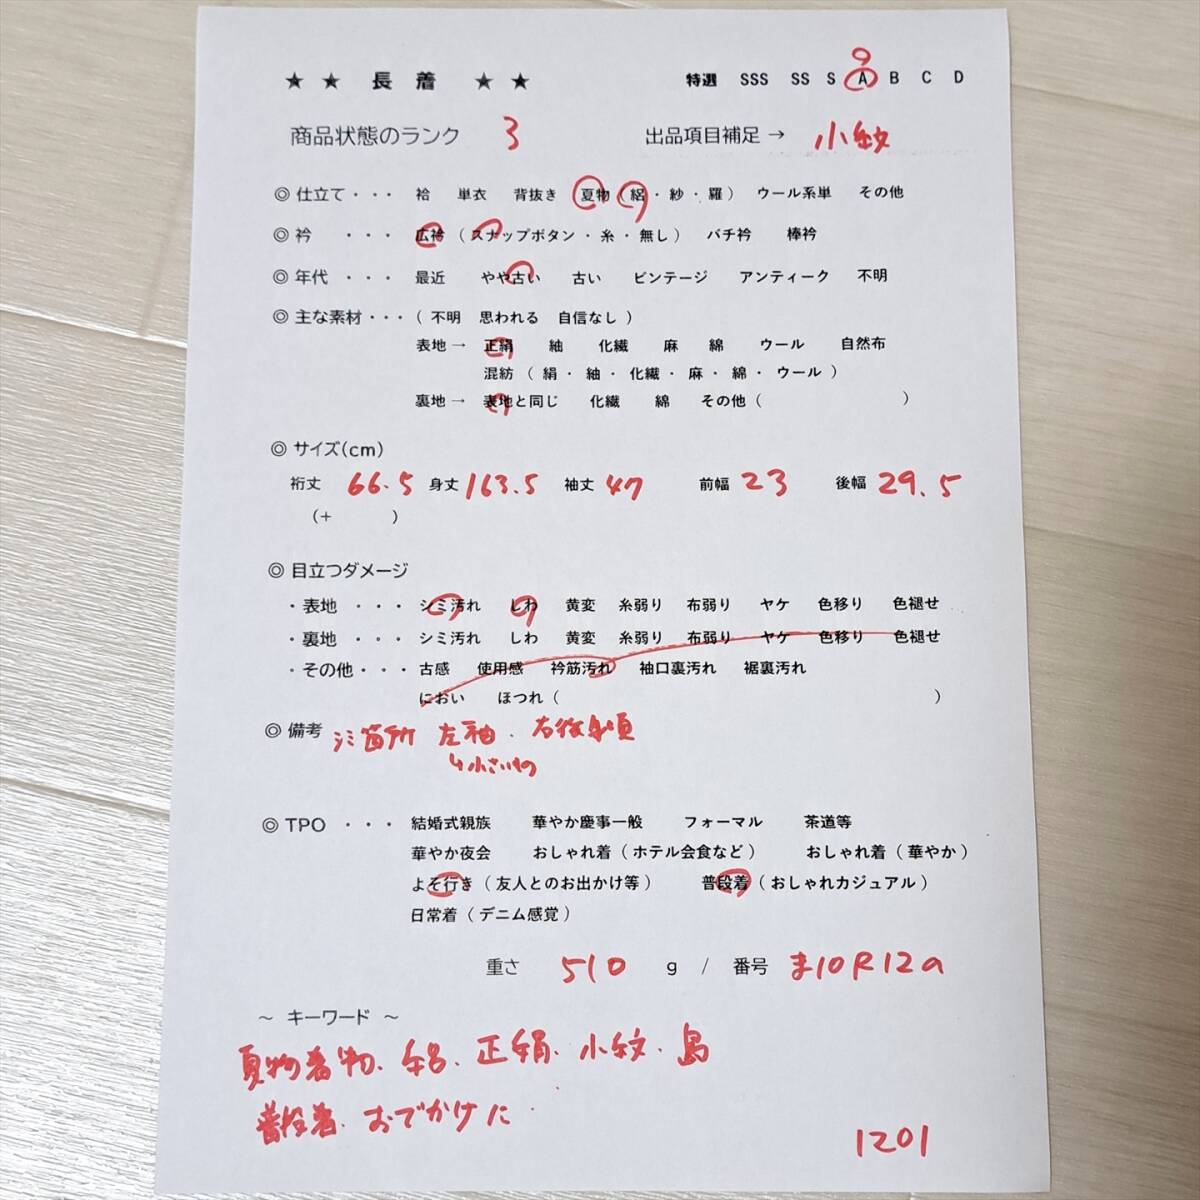 ★ ★ 長 着 ★ ★ 特選 SSS SS S A B C D
商品状態のランク 3 出品項目補足 → 小紋
◎ 仕立て ・・・ 袷 単衣 背抜き 夏物 ( 絽 ・ 紗 ・ 羅 ) ウール系単 その他
◎ 衿 ・・・ 広衿 ( スナップボタン ・ 糸 ・ 無し ) バチ衿 棒衿
◎ 年代 ・・・ 最近 やや古い 古い ビンテージ アンティーク 不明
◎ 主な素材 ・・・ ( 不明 思われる 自信なし )
表地 → 正絹 紬 化繊 麻 綿 ウール 自然布
混紡 ( 絹 ・ 紬 ・ 化繊 ・ 麻 ・ 綿 ・ ウール )
裏地 → 表地と同じ 化繊 綿 その他 ( )
◎ サイズ(cm)
裄丈 66.5 身丈 163.5 袖丈 47 前幅 23 後幅 29.5
(+ )
◎ 目立つダメージ
・ 表地 ・・・ シミ汚れ しわ 黄変 糸弱り 布弱り ヤケ 色移り 色褪せ
・ 裏地 ・・・ シミ汚れ しわ 黄変 糸弱り 布弱り ヤケ 色移り 色褪せ
・ その他 ・・・ 古感 使用感 衿筋汚れ 袖口裏汚れ 裾裏汚れ
におい ほつれ ( )
◎ 備考 シミ箇所 左袖、右後身頃
↳小さいもの
◎ TPO ・・・ 結婚式親族 華やか慶事一般 フォーマル 茶道等
華やか夜会 おしゃれ着 ( ホテル会食など ) おしゃれ着 ( 華やか )
よそ行き ( 友人とのお出かけ等 ) 普段着 ( おしゃれカジュアル )
日常着 ( デニム感覚 )
重さ 510 g / 番号 ま10R12a
～ キーワード ～
夏物着物、絽、正絹、小紋、島
普段着、おでかけに
1201